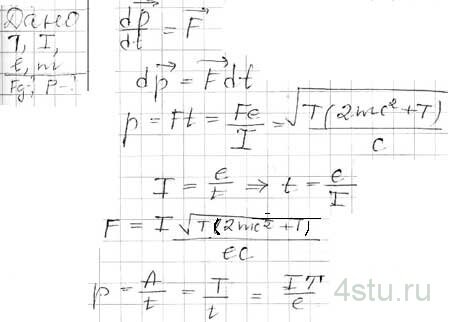 Дано
T, I,
e, m
Fg-? P-?
dp⃗/dt = F⃗
dp⃗ = F⃗dt
p = Ft = Fe/I = √(T(2mc²+T))/c
I = e/t ⇒ t = e/I
F = I √(T(2mc²+T))/ec
p = A/t = T/t = IT/e
4stu.ru